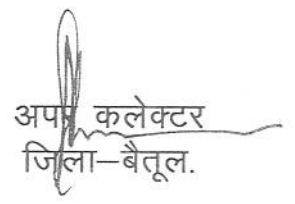 अपर कलेक्टर
जिला–बैतूल.